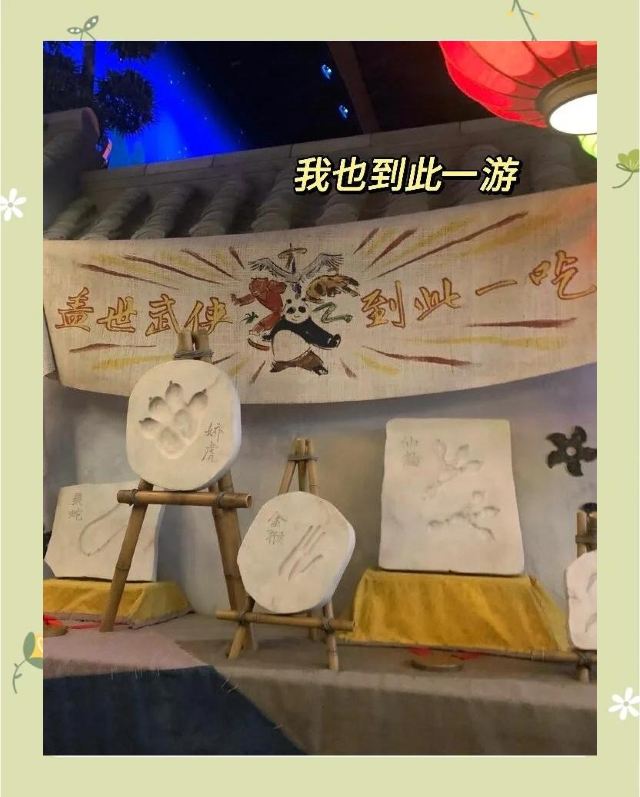 我也到此一游
盖世武侠 到此一吃
娇虎
灵蛇
金猴
仙鹤